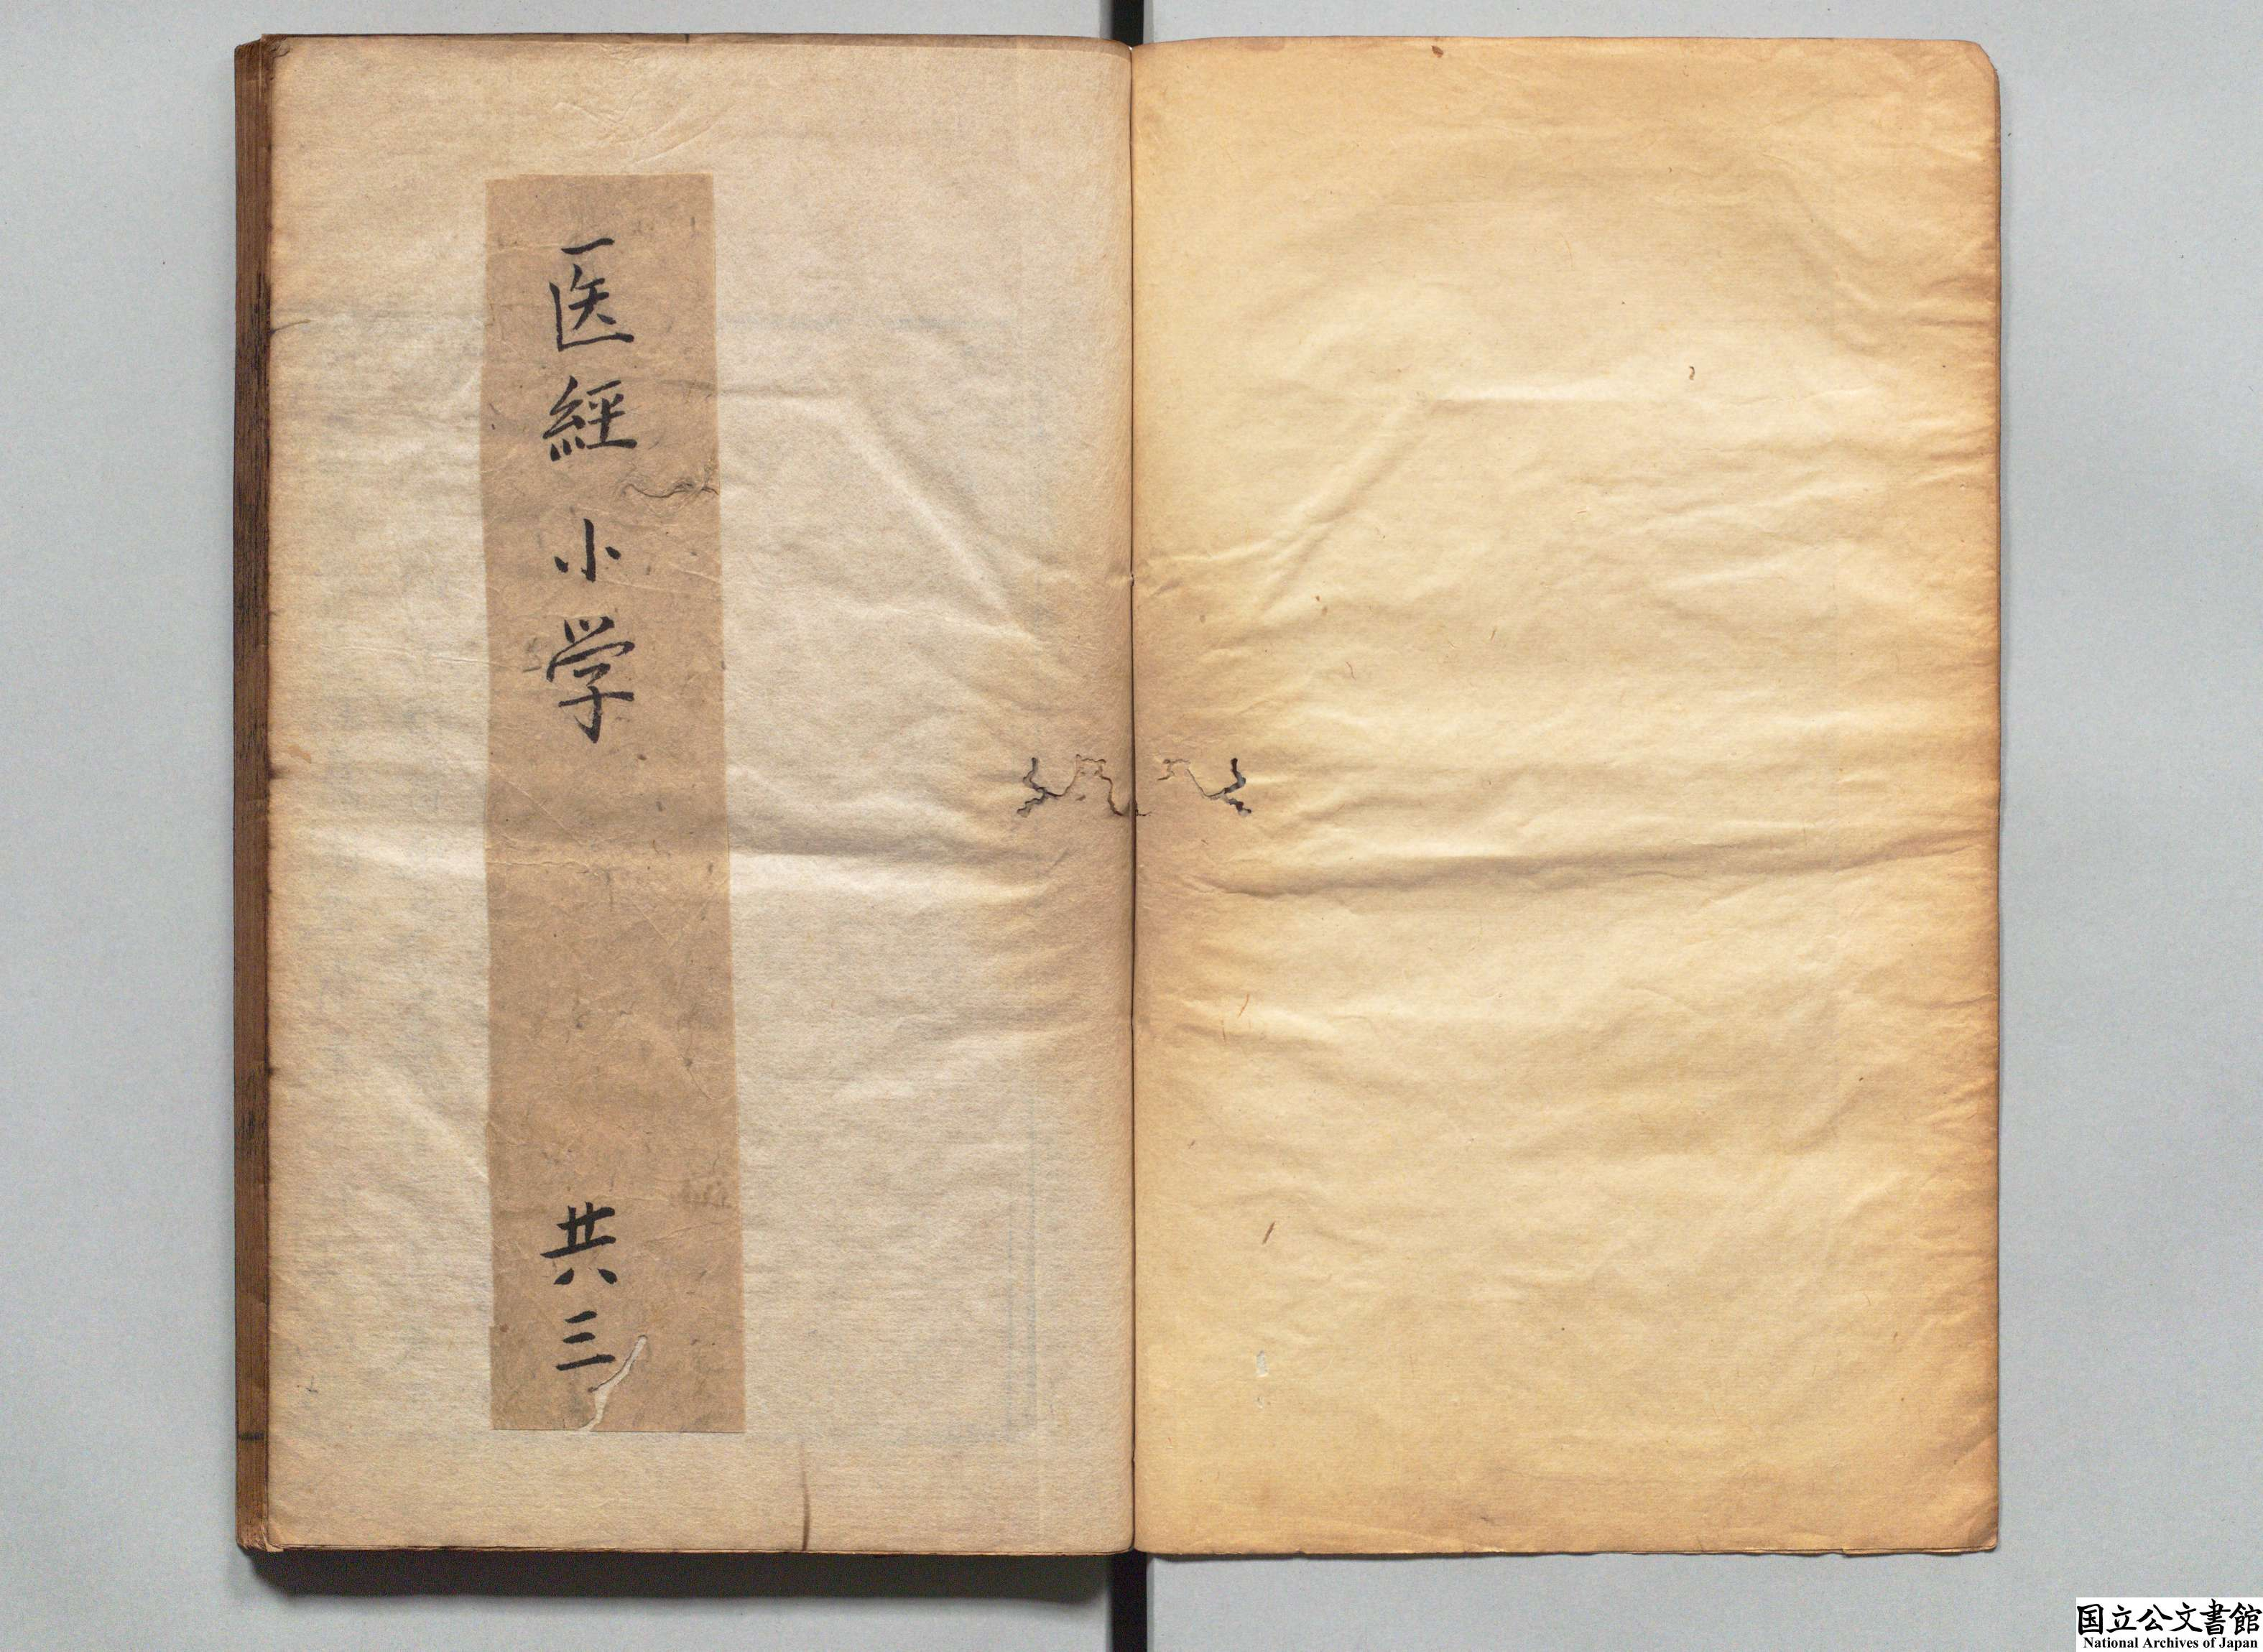 医經小学 共三
国立公文書館
National Archives of Japan